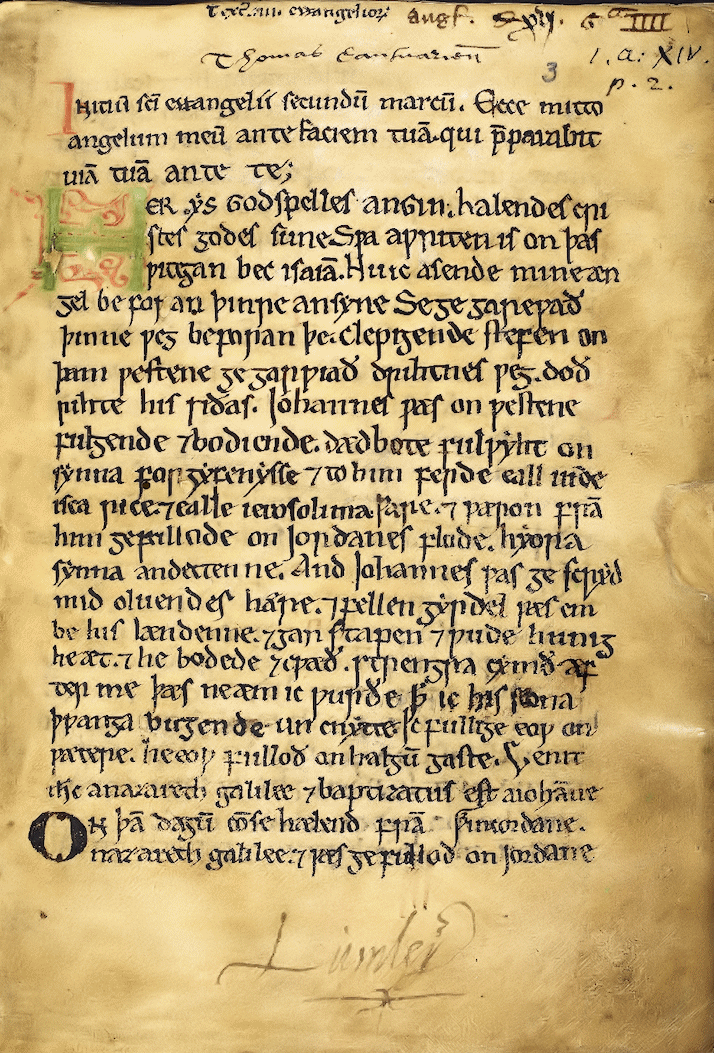 Text. iiii. ewangelior.
Thomas Cantuarien
3
I. A: XIV.
p. 2.
Initiū sci ewangelii secundū marcū. Ecce mitto
angelum meū ante faciem tuā. qui p̄parabit
uiā tuā ante te;
HER ys Godspelles angin. halendes cri
stes godes sune Swa awriten is on þas
witegan bec isaiā. Nu ic asende mine æn
gel be for an þinre ansyne Se ge garewað
þinne weg beforan þe. Clepigende stefen on
þam westene ge garwiað drihtnes weg. doð
rihte his siðas. Johannes was on westene
fulgende ⁊ bodiende. dædbote fulwyht on
synna forgyfenysse ⁊ to him ferde eall iude
isca rice. ⁊ ealle ierosolima ware. ⁊ wæron frā
him gefullode on Jordanes flode. hyora
synna andettenne. And Johannes was ge scryd
mid oluendes hære. ⁊ fellen gyrdel wæs em
be his lændenne. ⁊ gærstapen ⁊ wude hunig
he æt. ⁊ he bodede ⁊ cwæð. strengra cymð æf
ter me þæs ne æm ic wurðe þ̄ ic his scona
þwanga bugende un cnytte Ic fullige eow on
wætere. he eow fulloð on halgū gaste. Venit
ihc a nazareth galilee ⁊ baptizatus est a iohāne
ON þā dagū cōm se hælend frā in iordane.
nazareth galilee. ⁊ wæs gefullod on Jordane
Lumley